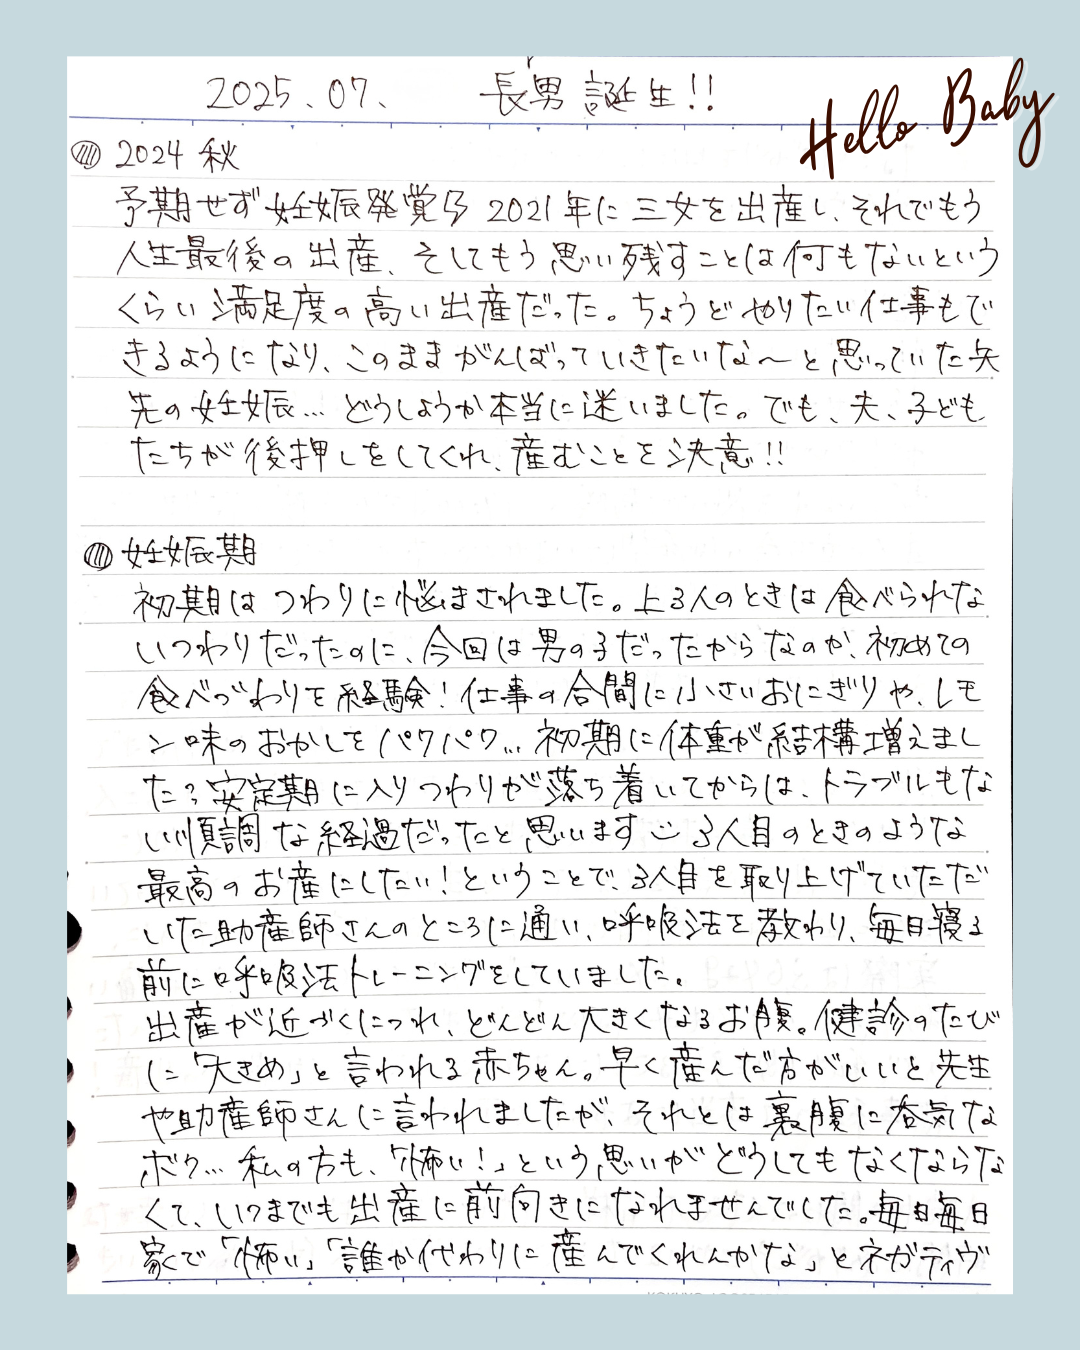 2025.07. 長男誕生!!
Hello Baby
2024 秋
予期せず妊娠発覚 2021年に三女を出産し、それでもう
人生最後の出産、そしてもう思い残すことは何もないという
くらい満足度の高い出産だった。ちょうどやりたい仕事もで
きるようになり、このままがんばっていきたいな〜と思っていた矢
先の妊娠… どうしようか本当に迷いました。でも、夫、子ども
たちが後押しをしてくれ、産むことを決意!!
妊娠期
初期はつわりに悩まされました。上3人のときは食べられな
いつわりだったのに、今回は男の子だったからなのか、初めての
食べづわりを経験!仕事の合間に小さいおにぎりや、レモ
ン味のおかしをパクパク… 初期に体重が結構増えまし
た? 安定期に入りつわりが落ち着いてからは、トラブルもな
い順調な経過だったと思います 3人目のときのような
最高のお産にしたい!ということで、3人目を取り上げていただ
いた助産師さんのところに通い、呼吸法を教わり、毎日寝る
前に呼吸法トレーニングをしていました。
出産が近づくにつれ、どんどん大きくなるお腹。健診のたび
に「大きめ」と言われる赤ちゃん。早く産んだ方がいいと先生
や助産師さんに言われましたが、それとは裏腹に呑気な
ボク… 私の方も、「怖い!」という思いがどうしてもなくならな
くて、いつまでも出産に前向きになれませんでした。毎日毎日
家で「怖い」「誰か代わりに産んでくれんかな」とネガティヴ